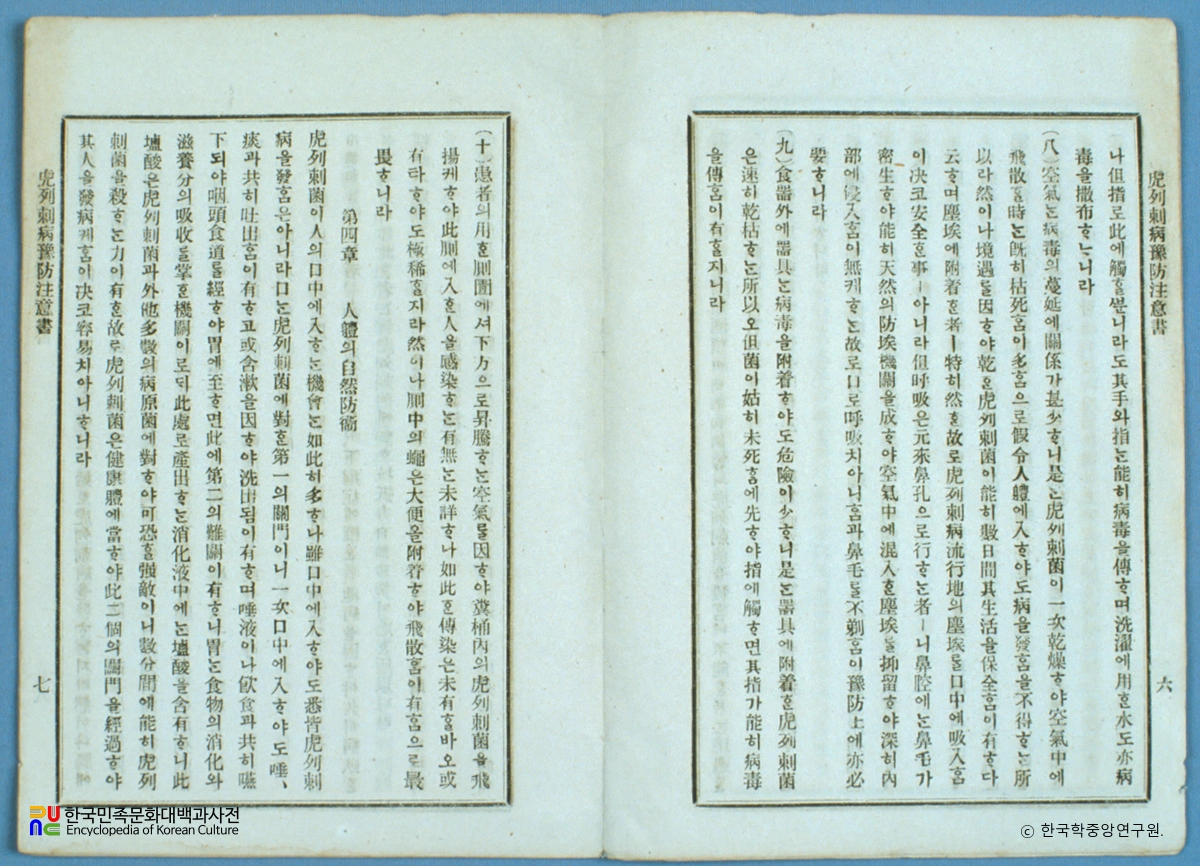 虎列刺病豫防注意書
六
나但指로此에觸ᄒᆞᆯᄲᅮᆫ니라도其手와指ᄂᆞᆫ能히病毒을傳ᄒᆞ며洗濯에用ᄒᆞᆫ水도亦病
毒을撒布ᄒᆞᄂᆞ니라
(八)空氣ᄂᆞᆫ病毒의蔓延에關係가甚少ᄒᆞ니是ᄂᆞᆫ虎列刺菌이一次乾燥ᄒᆞ야空氣中에
飛散ᄒᆞᆯ時ᄂᆞᆫ旣히枯死ᄒᆞᆷ이多ᄒᆞᆷ으로假令人體에入ᄒᆞ야도病을發ᄒᆞᆷ을不得ᄒᆞᄂᆞᆫ所
以라然이나境遇ᄅᆞᆯ因ᄒᆞ야乾ᄒᆞᆫ虎列刺菌이能히數日間其生活을保全ᄒᆞᆷ이有ᄒᆞ다
云ᄒᆞ며塵埃에附着ᄒᆞᆫ者ㅣ特히然ᄒᆞᆫ故로虎列刺病流行地의塵埃ᄅᆞᆯ口中에吸入ᄒᆞᆷ
이决코安全ᄒᆞᆫ事ㅣ아니라但呼吸은元來鼻孔으로行ᄒᆞᄂᆞᆫ者ㅣ니鼻腔에ᄂᆞᆫ鼻毛가
密生ᄒᆞ야能히天然의防埃機關을成ᄒᆞ야空氣中에混入ᄒᆞᆫ塵埃ᄅᆞᆯ抑留ᄒᆞ야深히內
部에侵入ᄒᆞᆷ이無케ᄒᆞᄂᆞᆫ故로口로呼吸치아니ᄒᆞᆷ과鼻毛ᄅᆞᆯ不剃ᄒᆞᆷ이豫防上에亦必
要ᄒᆞ니라
(九)食器外에器具ᄂᆞᆫ病毒을附着ᄒᆞ야도危險이少ᄒᆞ니是ᄂᆞᆫ器具에附着ᄒᆞᆫ虎列刺菌
은速히乾枯ᄒᆞᄂᆞᆫ所以오但菌이姑히未死ᄒᆞᆷ에先ᄒᆞ야指에觸ᄒᆞ면其指가能히病毒
을傳ᄒᆞᆷ이有ᄒᆞᆯ지니라
(十)患者의用ᄒᆞᆫ厠圊에셔下方으로昇騰ᄒᆞᄂᆞᆫ空氣ᄅᆞᆯ因ᄒᆞ야糞桶內의虎列刺菌을飛
揚케ᄒᆞ야此厠에入ᄒᆞᆫ人을感染ᄒᆞᄂᆞᆫ有無ᄂᆞᆫ未詳ᄒᆞ나如此ᄒᆞᆫ傳染은未有ᄒᆞᆫ바오或
有타ᄒᆞ야도極稀ᄒᆞᆯ지라然이나厠中의蠅은大便을附着ᄒᆞ야飛散ᄒᆞᆷ이有ᄒᆞᆷ으로最
畏ᄒᆞ니라
第四章 人體의自然防衛
虎列刺菌이人의口中에入ᄒᆞᄂᆞᆫ機會ᄂᆞᆫ如此히多ᄒᆞ나雖口中에入ᄒᆞ야도悉皆虎列刺
病을發ᄒᆞᆷ은아니라口ᄂᆞᆫ虎列刺菌에對ᄒᆞᆫ第一의關門이니一次口中에入ᄒᆞ야도唾、
痰과共히吐出ᄒᆞᆷ이有ᄒᆞ고或含漱을因ᄒᆞ야洗出됨이有ᄒᆞ며唾液이나飮食과共히嚥
下되야咽頭食道ᄅᆞᆯ經ᄒᆞ야胃에至ᄒᆞ면此에第二의難關이有ᄒᆞ니胃ᄂᆞᆫ食物의消化와
滋養分의吸收ᄅᆞᆯ掌ᄒᆞᆫ機關이로ᄃᆡ此處로産出ᄒᆞᄂᆞᆫ消化液中에ᄂᆞᆫ塩酸을含有ᄒᆞ니此
塩酸은虎列刺菌과外他多數의病原菌에對ᄒᆞ야可恐ᄒᆞᆯ强敵이니數分間에能히虎列
刺菌을殺ᄒᆞᄂᆞᆫ力이有ᄒᆞᆫ故로虎列刺菌은健康體에當ᄒᆞ야此二個의關門을經過ᄒᆞ야
其人을發病케ᄒᆞᆷ이决코容易치아니ᄒᆞ니라
虎列刺病豫防注意書
七
한국민족문화대백과사전
Encyclopedia of Korean Culture
© 한국학중앙연구원.